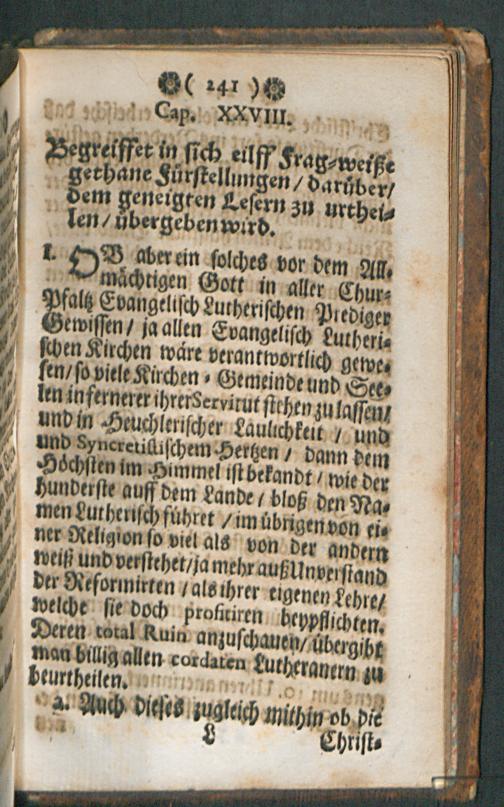 ( 241 )
Cap. XXVIII.
Begreiffet in sich eilff Frag-weiße
gethane Fürstellungen / darüber /
dem geneigten Lesern zu urthei-
len / übergeben wird.
1. OB aber ein solches vor dem All-
mächtigen Gott in aller Chur-
Pfaltz Evangelisch Lutherischen Prediger
Gewissen / ja allen Evangelisch Lutheri-
schen Kirchen wäre verantwortlich gewe-
sen / so viele Kirchen-Gemeinde und See-
len in fernerer ihrer Servitut stehen zu lassen /
und in Heuchlerischer Laulichkeit / und
und Syncretistischem Hertzen / dann dem
Höchsten im Himmel ist bekandt / wie der
hunderste auff dem Lande / bloß den Na-
men Lutherisch führet / im übrigen von ei-
ner Religion so viel als von der andern
weiß und verstehet / ja mehr auß Unverstand
der Reformirten / als ihrer eigenen Lehre /
welche sie doch profitiren beypflichten.
Deren total Ruin anzuschauen / übergibt
man billig allen cordaten Lutheranern zu
beurtheilen.
2. Auch dieses zugleich mithin ob die
L Christ-